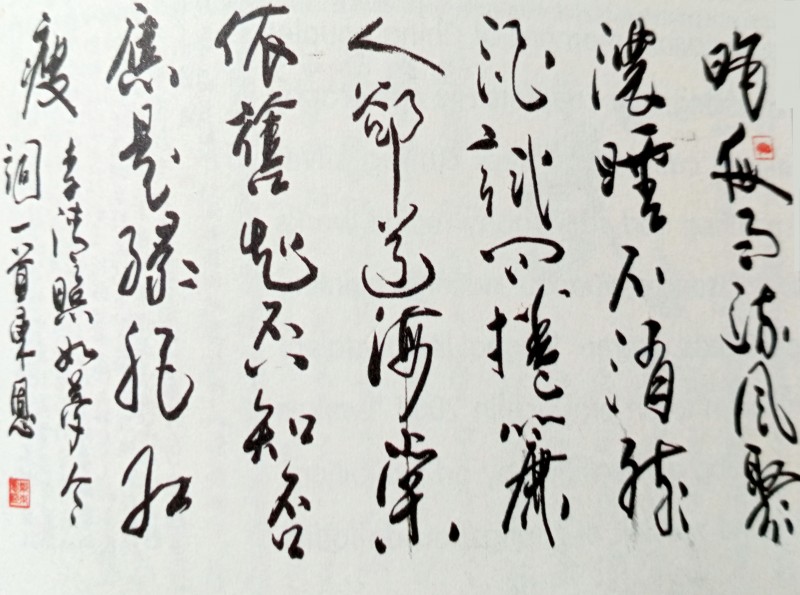 昨夜雨疏風驟
濃睡不消殘
酒試問捲簾
人卻道海棠
依舊知否知否
應是綠肥紅
瘦
李清照如夢令
詞一首東恩